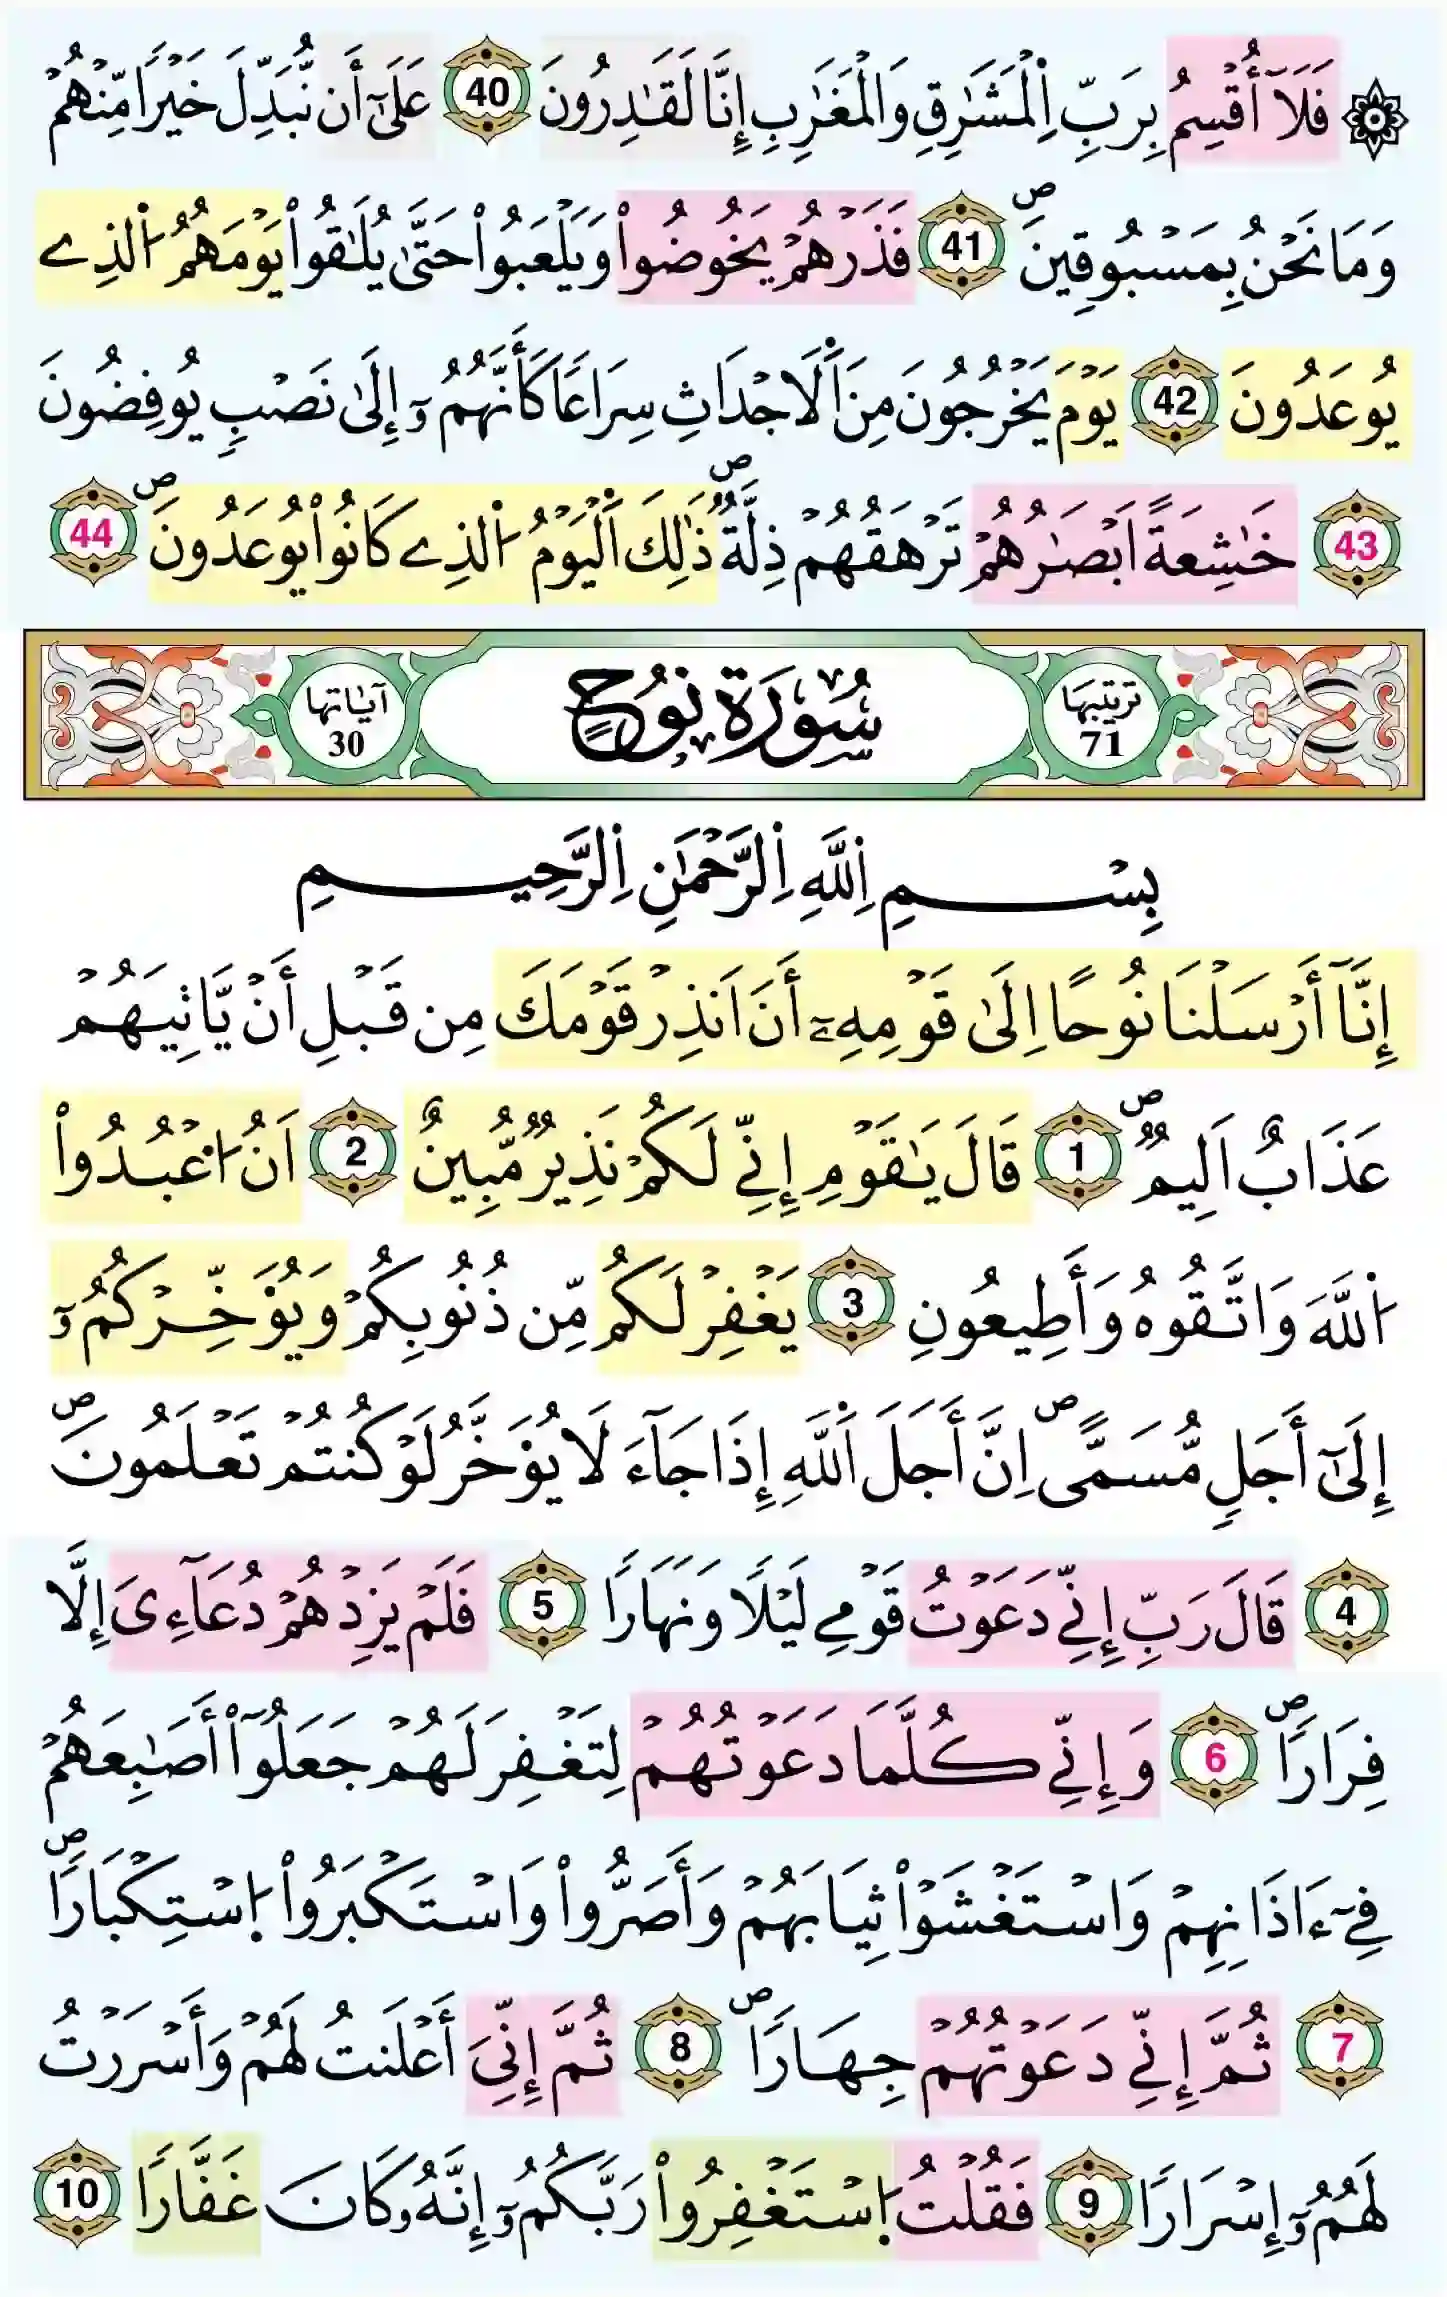 ۞ فَلَآ أُقْسِمُ بِرَبِّ اِ۬لْمَشَٰرِقِ وَالْمَغَٰرِبِ إِنَّا لَقَٰدِرُونَ 40 عَلَىٰٓ أَن نُّبَدِّلَ خَيْراٗ مِّنْهُمْ
وَمَا نَحْنُ بِمَسْبُوقِينَۖ 41 فَذَرْهُمْ يَخُوضُواْ وَيَلْعَبُواْ حَتَّىٰ يُلَٰقُواْ يَوْمَهُمُ اُ۬لذِے
يُوعَدُونَ 42 يَوْمَ يَخْرُجُونَ مِنَ اَ۬لَاجْدَاثِ سِرَاعاٗ كَأَنَّهُمُۥٓ إِلَىٰ نَصْبٖ يُوفِضُونَ
43 خَٰشِعَةً اَبْصَٰرُهُمْ تَرْهَقُهُمْ ذِلَّةٞۖ ذَٰلِكَ اَ۬لْيَوْمُ اُ۬لذِے كَانُواْ يُوعَدُونَۖ 44
ترتيبها 71 سُورَةُ نُوحٍ آياتها 30
بِسْمِ اِ۬للَّهِ اِ۬لرَّحْمَٰنِ اِ۬لرَّحِيمِ
إِنَّآ أَرْسَلْنَا نُوحاً اِلَىٰ قَوْمِهِۦٓ أَنَ اَنذِرْ قَوْمَكَ مِن قَبْلِ أَنْ يَّاتِيَهُمْ
عَذَابٌ اَلِيمٞۖ 1 قَالَ يَٰقَوْمِ إِنِّے لَكُمْ نَذِيرٞ مُّبِينٌ 2 اَنُ اُ۟عْبُدُواْ
اُ۬للَّهَ وَاتَّقُوهُ وَأَطِيعُونِ 3 يَغْفِرْ لَكُم مِّن ذُنُوبِكُمْ وَيُؤَخِّرْكُمُۥٓ
إِلَىٰٓ أَجَلٖ مُّسَمّيًۖ اِنَّ أَجَلَ اَ۬للَّهِ إِذَا جَآءَ لَا يُؤَخَّرُ لَوْ كُنتُمْ تَعْلَمُونَۖ
4 قَالَ رَبِّ إِنِّے دَعَوْتُ قَوْمِے لَيْلاٗ وَنَهَاراٗ 5 فَلَمْ يَزِدْهُمْ دُعَآءِيَ إِلَّا
فِرَاراٗۖ 6 وَإِنِّے كُلَّمَا دَعَوْتُهُمْ لِتَغْفِرَ لَهُمْ جَعَلُوٓاْ أَصَٰبِعَهُمْ
فِےٓ ءَاذَانِهِمْ وَاسْتَغْشَوْاْ ثِيَابَهُمْ وَأَصَرُّواْ وَاسْتَكْبَرُواْ اُ۪سْتِكْبَاراٗۖ
7 ثُمَّ إِنِّے دَعَوْتُهُمْ جِهَاراٗۖ 8 ثُمَّ إِنِّيَ أَعْلَنتُ لَهُمْ وَأَسْرَرْتُ
لَهُمُۥٓ إِسْرَاراٗ 9 فَقُلْتُ اُ۪سْتَغْفِرُواْ رَبَّكُمُۥٓ إِنَّهُۥ كَانَ غَفَّاراٗ 10